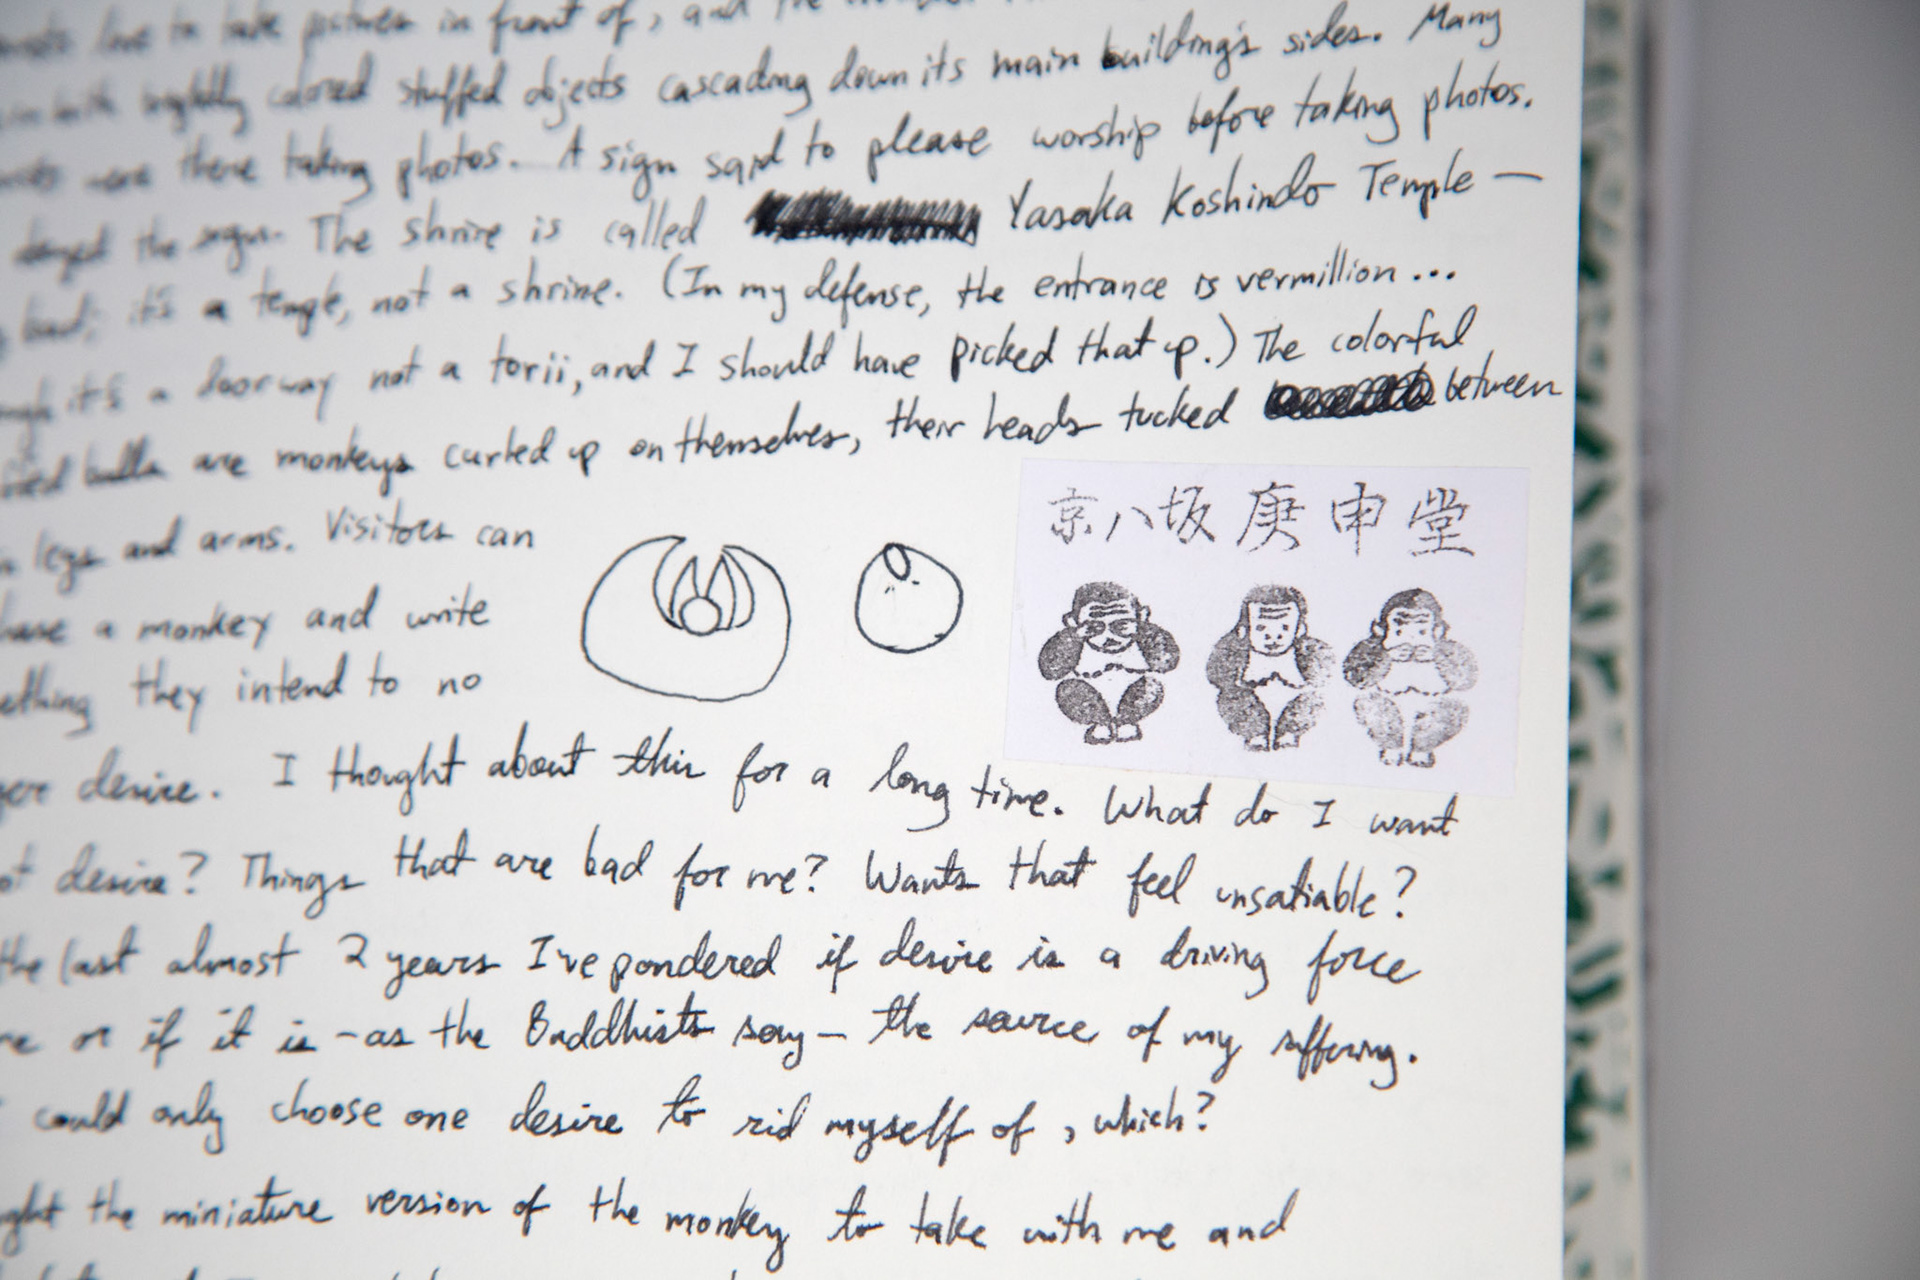 love to take pictures in front of, and the
colored stuffed objects cascading down its main building's sides. Many
were there taking photos. A sign said to please worship before taking photos.
the sign. The shrine is called Yasaka Koshindo Temple —
bad; it's a temple, not a shrine. (In my defense, the entrance is vermillion...
it's a doorway not a torii, and I should have picked that up.) The colorful
balls are monkeys curled up on themselves, their heads tucked between
legs and arms. Visitors can
京八坂庚申堂
a monkey and write
they intend to no
desire. I thought about this for a long time. What do I want
desire? Things that are bad for me? Wants that feel unsatiable?
the last almost 2 years I've pondered if desire is a driving force
or if it is – as the Buddhists say – the source of my suffering.
could only choose one desire to rid myself of, which?
the miniature version of the monkey to take with me and